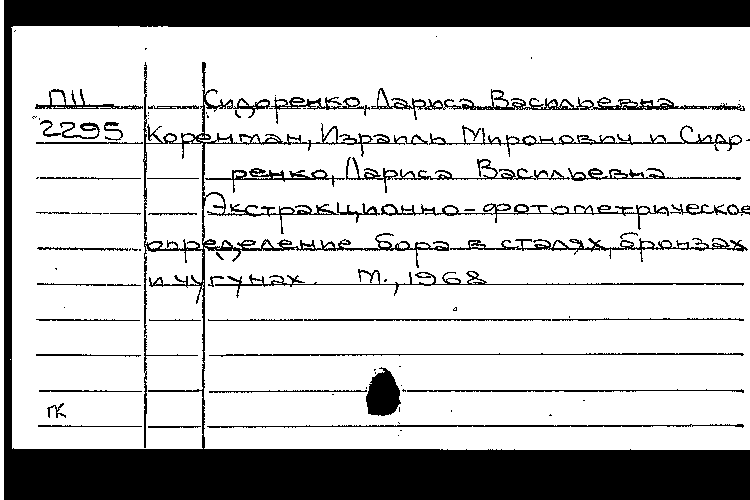 П11 Сидоренко, Лариса Васильевна
2295 Коренман, Израиль Миронович и Сидо-
ренко, Лариса Васильевна
Экстракционно-фотометрическое
определение бора в сталях, бронзах
и чугунах. М., 1968
ГК